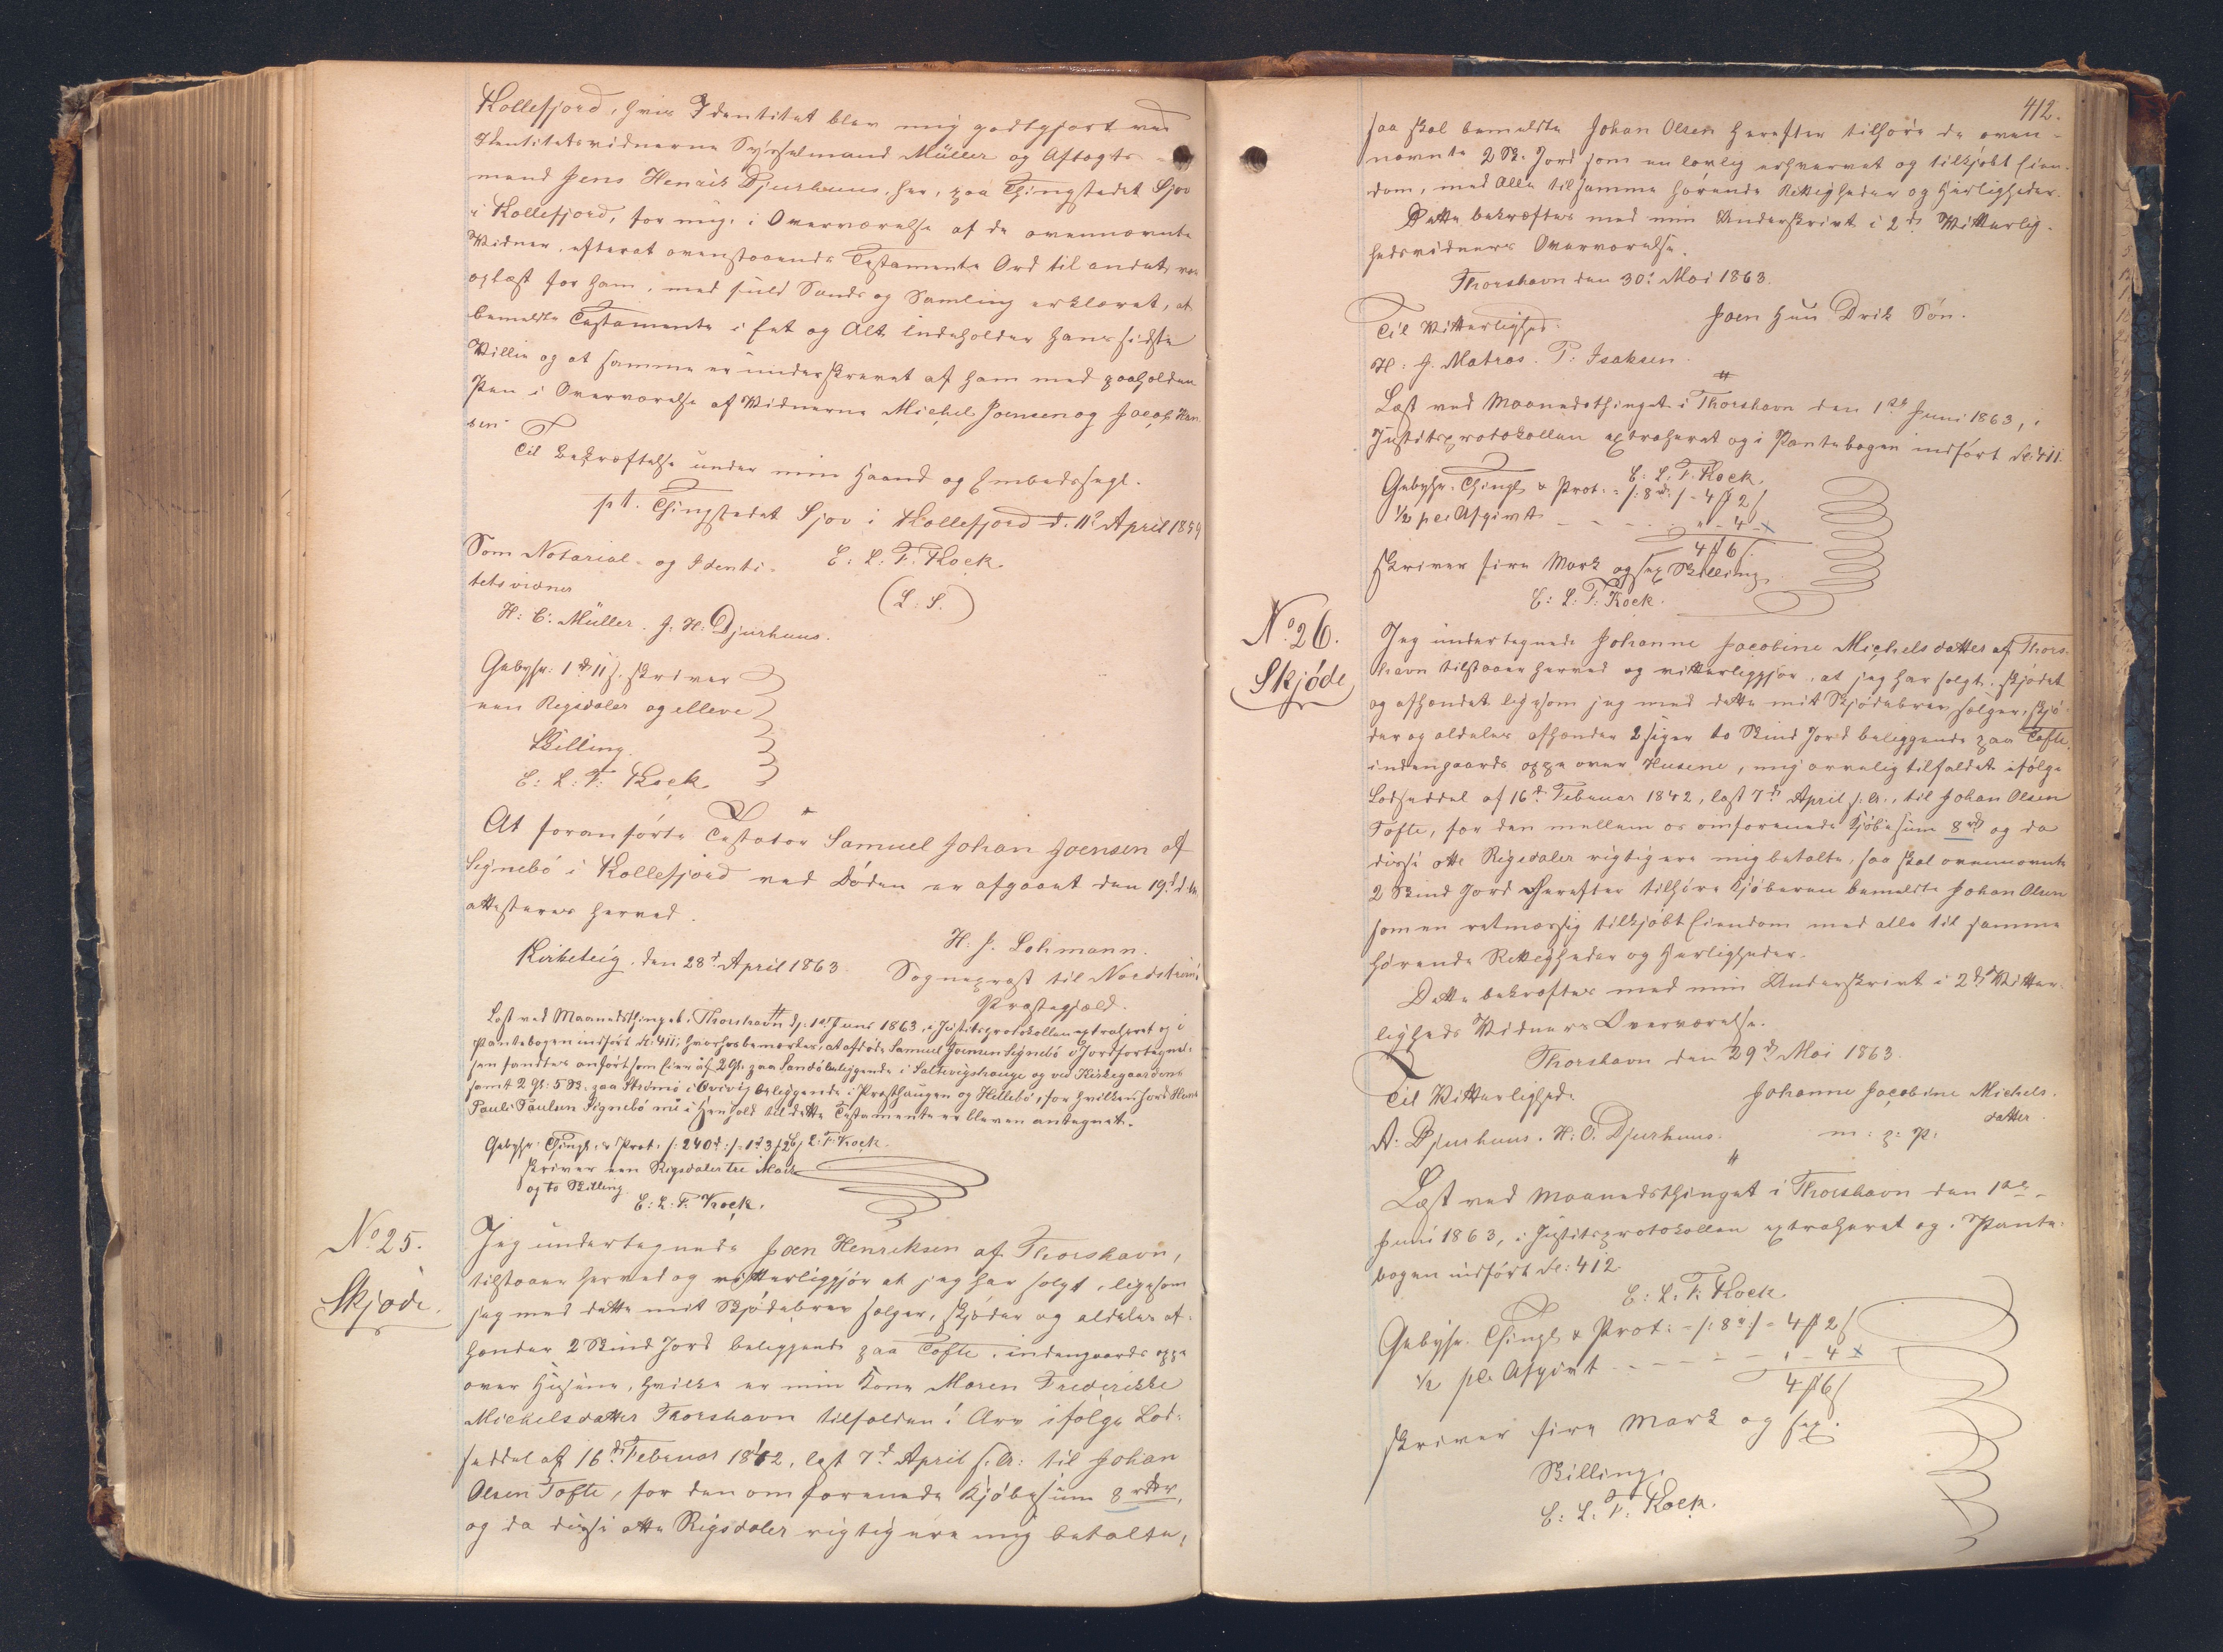 Kollefjord, hvis Identitet blev mig godtgjort ved
Identitetsvidnerne Sysselmand Müller og Aftægts-
mand Jens Henrik Djurhuus, har, paa Thingstedet Sjov
i Kollefjord, for mig, i Overværelse af de ovennævnte
Vidner, efterat ovenstaaende Testamente Ord til andet var
oplæst for ham, med fuld Sands og Samling erklæret, at
bemeldte Testamente i Eet og Alt indeholder hans sidste
Villie og at samme er underskrevet af ham med paaholden
Pen i Overværelse af Vidnerne Michel Joensen og Jacob Han
sen.
Til Bekræftelse under min Haand og Embedssegl.
p.t. Thingstedet Sjov i Kollefjord d. 11te April 1859
Som Notarial- og Identi- E: L: F: Kock.
tetsvidner (L: S.)
H: C: Müller. J: H: Djurhuus.
Gebyhr: 1rd 11s. skriver
een Rigsdaler og elleve
Skilling.
E: L: F: Kock
At foranförte Testator Samuel Johan Joensen af
Signebö i Kollefjord ved Döden er afgaaet den 19de d.M.
attesteres herved.
Kirketeig, den 28de April 1863. H. J. Lohmann.
Sognepræst til Nordströmö
Præstegjæld.
Læst ved Maanedsthinget i Thorshavn d. 1ste Juni 1863, i Justitsprotokollen extraheret og i
Pantebogen indfört fol: 411; hvorhos bemærkes, at afdöde Samuel Joensen Signebö i Jordfortegnel-
sen fandtes anfört som Eier af 2 Gl. paa Sandö beliggende i Saltevigshauge og ved Kirkegaardens
samt 2 Gl: 5 Sk. paa Strömö i Qvivig beliggende i Præsthaugen og Hillebö, for hvilken Jord Hans
Pauli Paulsen Signebö nu i Henhold til dette Testamente er bleven antegnet.
Gebyhr Thingl. & Prot. /: 240rd :/ 1rd 3 mk 2 s E: L: F: Kock.
skriver een Rigsdaler tre Mark
og to Skilling.
E: L: F. Kock.
No 25.
Skjöde.
Jeg undertegnede Joen Henriksen af Thorshavn,
tilstaaer herved og vitterliggjör at jeg har solgt, ligesom
jeg med dette mit Skjödebrev sælger, skjöder og aldeles af-
hænder 2 Skind Jord beliggende paa Tofte, indengaards oppe
over Husene, hvilke er min Kone Maren Frederikke
Michelsdatter Thorshavn tilfalden i Arv ifölge Lod-
seddel af 16de Februar 1842, læst 7de April s. A: til Johan
Olsen Tofte, for den omforenede Kjöbesum 8 rdlr,
og da disse otte Rigsdaler rigtig ere mig betalte,
412.
saa skal bemeldte Johan Olsen herefter tilhöre de oven-
nævnte 2 Sk. Jord som en lovlig erhvervet og tilkjöbt Eien-
dom, med Alle til samme hörende Rettigheder og Herligheder.
Dette bekræftes med min Underskrivt i 2de Vitterlig-
hedsvidners Overværelse.
Thorshavn den 30te Mai 1863.
Til Vitterlighed: Joen Hen Drik Sön.
H: J. Matras. P: Isaksen.
Læst ved Maanedsthinget i Thorshavn den 1ste Juni 1863, i
Justitsprotokollen extraheret og i Pantebogen indfört fol: 411.
E: L: F. Kock.
Gebyhr. Thingl. & Prot: - /: 8rd :/ - 4 mk 2 s
1/2 pCt Afgivt - - - - " - 4 -
4 mk 6 s.
skriver fire Mark og sex Skilling.
E: L: F: Kock.
No 26.
Skjöde
Jeg undertegnede Johanne Jacobine Michelsdatter af Thors-
havn tilstaaer herved og vitterliggjör, at jeg har solgt, skjödet
og afhændet ligesom jeg med dette mit Skjödebrev sælger, skjö-
der og aldeles afhænder 2 siger to Skind Jord beliggende paa Tofte,
indengaards oppe over Husene, mig arvelig tilfaldet ifölge
Lodseddel af 16de Februar 1842, læst 7de April s. A., til Johan Olsen
Tofte, for den mellem os omforenede Kjöbesum 8 rd og da
disse otte Rigsdaler rigtig ere mig betalte, saa skal ovennævnte
2 Skind Jord herefter tilhöre Kjöberen bemeldte Johan Olsen
som en retmæssig tilkjöbt Eiendom med alle til samme
hörende Rettigheder og Herligheder.
Dette bekræftes med min Underskrivt i 2de Vitter-
ligheds Vidners Overværelse.
Thorshavn den 29de Mai 1863.
Til Vitterlighed: Johanne Jacobine Michels-
datter
A: Djurhuus. H: O. Djurhuus. m: p: P:
Læst ved Maanedsthinget i Thorshavn den 1ste
Juni 1863, i Justitsprotokollen extraheret og i Pante-
bogen indfört fol: 412.
E: L: F. Kock.
Gebyhr. Thingl. & Prot: - /: 8rd :/ - 4 mk 2 s
1/2 pCt Afgivt - - - - - " - 4
4 mk 6 s
skriver fire Mark og sex
Skilling.
E: L: F: Kock.